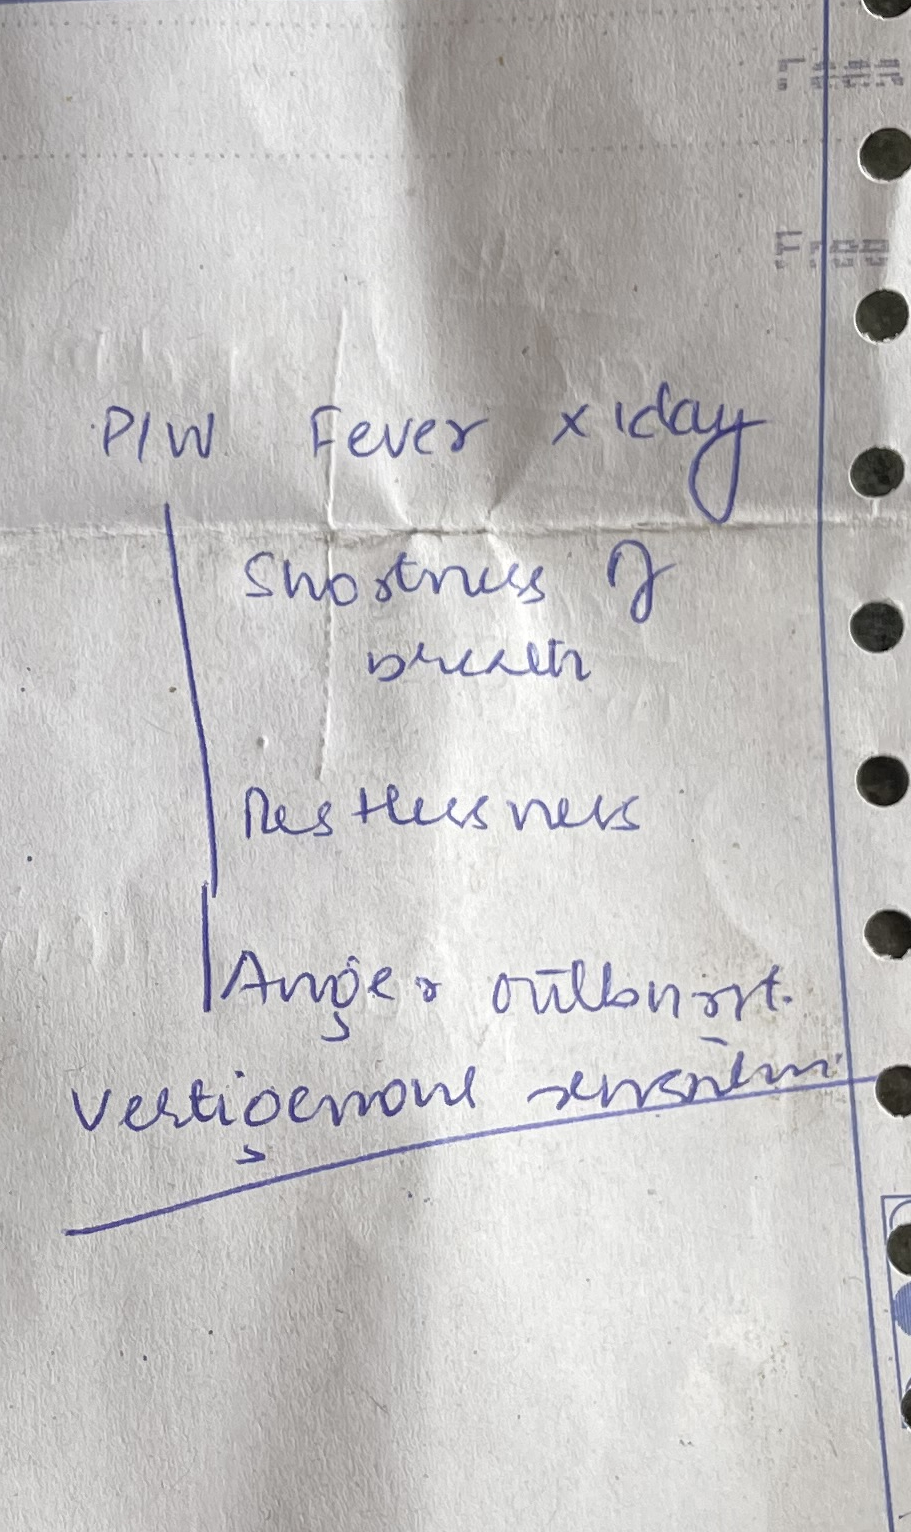 P/W Fever x 1day
Shortness of
breath
Restlessness
Anger outburst.
Vertigenous sensation